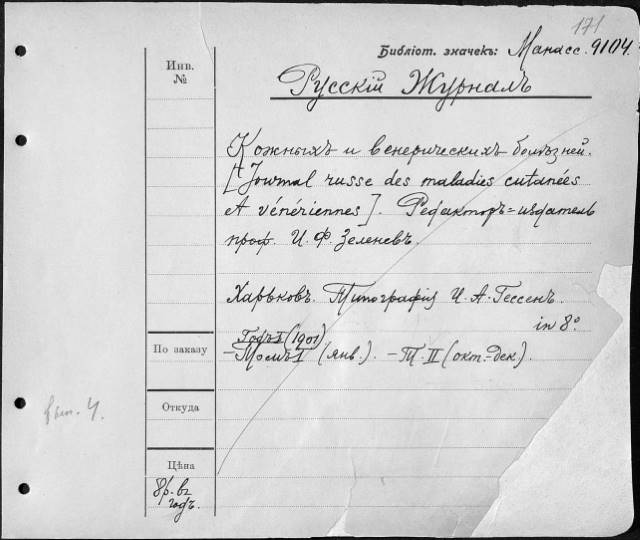 171
Библіот. значекъ: Манасс. 9104.
Инв.
№
Русскій Журналъ
Кожныхъ и венерическихъ болѣзней.
[Journal russe des maladies cutanées
et vénériennes]. Редакторъ=издатель
проф. И. Ф. Зеленевъ.
Харьковъ. Типографія И. А. Гессенъ.
in 8°
Годъ I (1901)
По заказу
– Томъ I (янв.). – Т. II (окт.-дек).
вып. 4.
Откуда
Цѣна
8 р. въ
годъ.